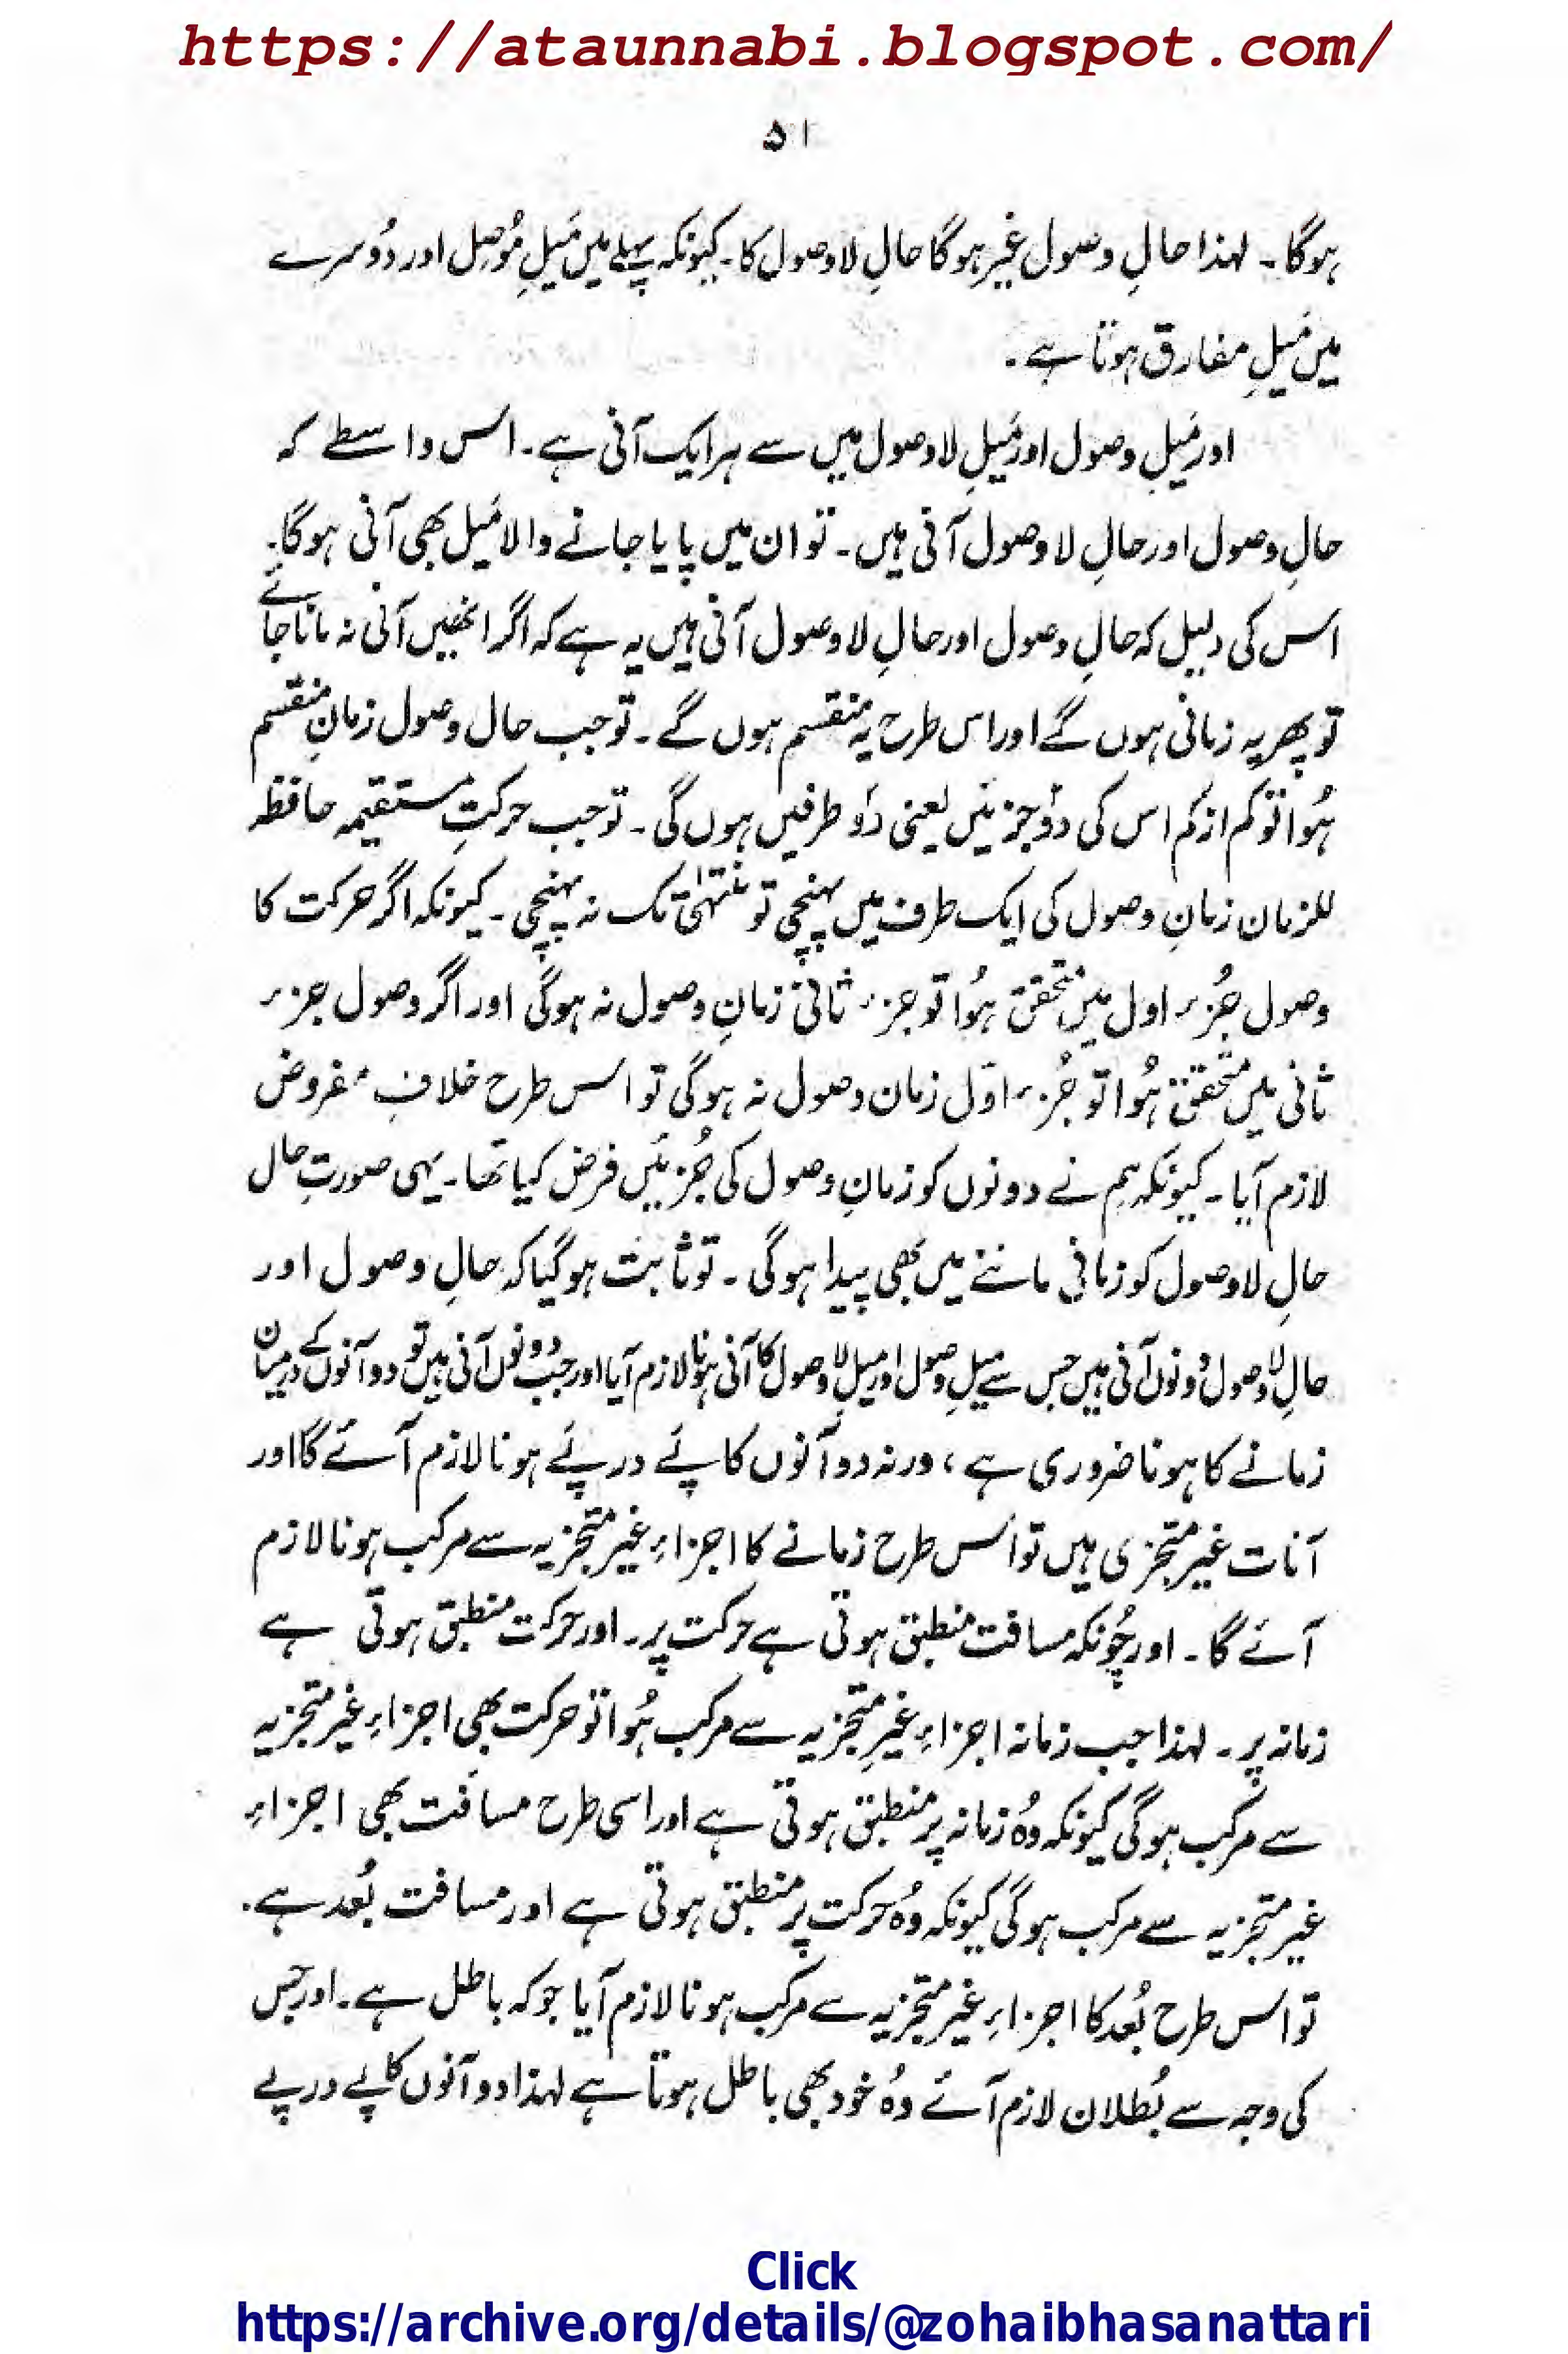 https://ataunnabi.blogspot.com/
۵۱
ہوگا۔ لہذا حالِ وصول غیر ہوگا حالِ لاوصول کا۔ کیونکہ پہلے میں مَیلِ مُوصِل اور دُوسرے
میں مَیلِ مفارق ہوتا ہے۔
اور مَیلِ وصول اور مَیلِ لاوصول میں سے ہر ایک آنی ہے۔ اس واسطے کہ
حالِ وصول اور حالِ لا وصول آنی ہیں۔ تو ان میں پایا جانے والا مَیل بھی آنی ہوگا۔
اس کی دلیل کہ حالِ وصول اور حالِ لا وصول آنی ہیں یہ ہے کہ اگر انھیں آنی نہ مانا جائے
تو پھر یہ زمانی ہوں گے اور اس طرح یہ منقسم ہوں گے۔ تو جب حال وصول زمانِ منقسم
ہُوا تو کم از کم اس کی دوٗ جزئیں یعنی دوٗ طرفیں ہوں گی۔ تو جب حرکتِ مستقیمہ حافظہ
للزمان زمانِ وصول کی ایک طرف میں پہنچی تو منتہٰی تک نہ پہنچی۔ کیونکہ اگر حرکت کا
وصول جُزء اول میں متحقق ہُوا تو جزء ثانی زمانِ وصول نہ ہوگی اور اگر وصول جزء
ثانی میں متحقق ہُوا تو جُزء اوّل زمان وصول نہ ہوگی تو اس طرح خلافِ مفروض
لازم آیا۔ کیونکہ ہم نے دونوں کو زمانِ وصول کی جُزئیں فرض کیا تھا۔ یہی صورتِ حال
حالِ لاوصول کو زمانی ماننے میں بھی پیدا ہوگی۔ تو ثابت ہوگیا کہ حالِ وصول اور
حالِ لاوصول دونوں آنی ہیں جس سے میلِ وصول اور میلِ لاوصول کا آنی ہونا لازم آیا اور جب دونوں آنی ہیں تو دو آنوں کے درمیان
زمانے کا ہونا ضروری ہے، ورنہ دو آنوں کا پَے در پَے ہونا لازم آئے گا اور
آنات غیر متجزی ہیں تو اس طرح زمانے کا اجزاءِ غیر متجزیہ سے مرکب ہونا لازم
آئے گا۔ اور چُونکہ مسافت منطبق ہوتی ہے حرکت پر۔ اور حرکت منطبق ہوتی ہے
زمانہ پر۔ لہذا جب زمانہ اجزاءِ غیرِ متجزیہ سے مرکب ہُوا تو حرکت بھی اجزاءِ غیر متجزیہ
سے مرکب ہوگی کیونکہ وُہ زمانہ پر منطبق ہوتی ہے اور اسی طرح مسافت بھی اجزاءِ
غیر متجزیہ سے مرکب ہوگی کیونکہ وُہ حرکت پر منطبق ہوتی ہے اور مسافت بُعد ہے۔
تو اس طرح بُعد کا اجزاءِ غیر متجزیہ سے مرکب ہونا لازم آیا جو کہ باطل ہے۔ اور جس
کی وجہ سے بُطلان لازم آئے وُہ خود بھی باطل ہوتا ہے لہذا دو آنوں کا پے در پے
Click
https://archive.org/details/@zohaibhasanattari